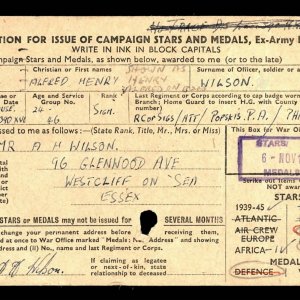 TION FOR ISSUE OF CAMPAIGN STARS AND MEDALS, Ex-Army
WRITE IN INK IN BLOCK CAPITALS
mpaign Stars and Medals, as shown below, awarded to me (or to the late)
Christian or first Names
Surname of Officer, soldier or
ALFRED HENRY
HENRY
WILSON.
Age and Service
Group No.
Rank
Last Regiment or Corps according to cap badge worn
Branch; Home Guard to insert H.G. with County
24
46
Sigm.
RCofSigs/
issued to me as follows:— (State Rank, Title, Mr., Mrs. or Miss)
This Box for War
MR A H WILSON.
96 GLENWOOD AVE
WESTCLIFF ON SEA
ESSEX
STARS/
6 - NOV
MEDALS
Strike out items
NOT
STARS
1939-45
ATLANTIC
AIR CREW
EUROPE
AFRICA
MEDAL
DEFENCE
STARS or MEDALS may not be issued for SEVERAL MONTHS
change your permanent address before receiving your
of it to War Office marked "Medals; New Address" and showing
name and last Regiment or Corps.
If claiming as legatee
or next-of-kin, state
relationship to deceased
A. H. Wilson.